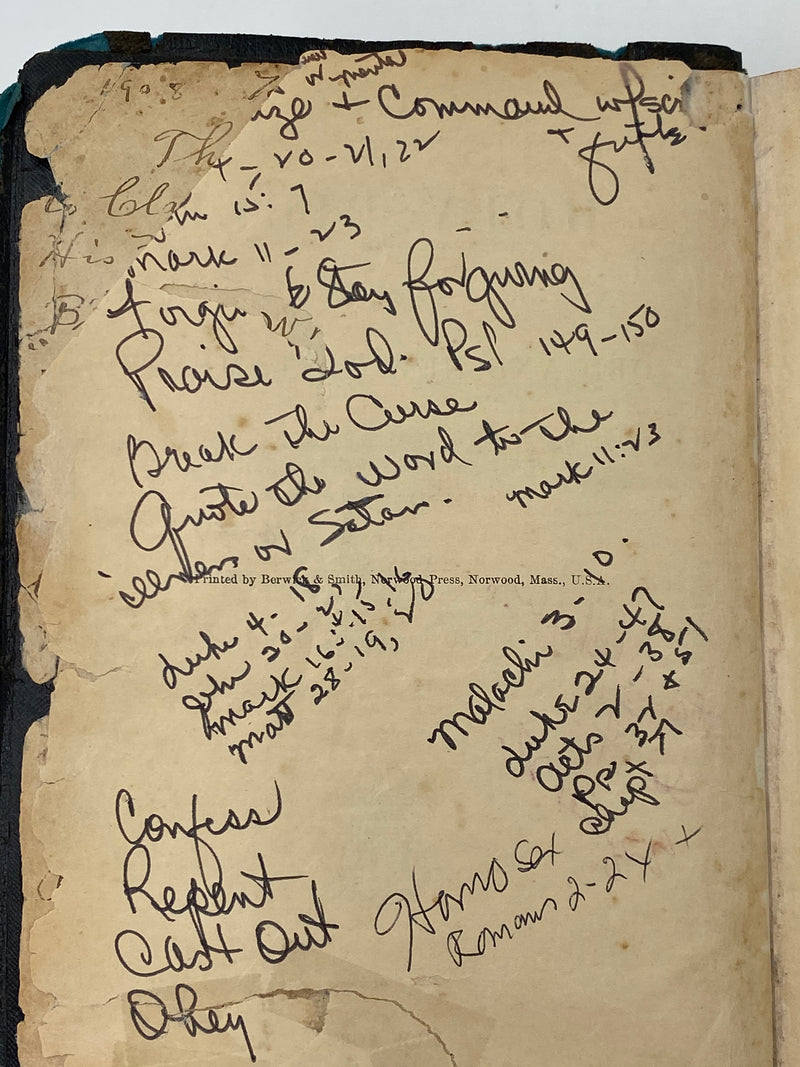 1908
+ Command w/scri
+ fruits
Th
4 - 20 - 21, 22
to Cla
15: 7
His
Mark 11 - 23
B
Forgive & Stay forgiving
Praise God. Psl 149-150
Break the Curse
Quote the Word to the
illness or Satan. Mark 11:23
Printed by Berwick & Smith, Norwood Press, Norwood, Mass., U.S.A.
Luke 4 - 18
John 20 - 21
Mark 16 - 15 - 16
Matt 28 - 19, 20
Malachi 3 - 10.
Luke 24 - 47
Acts 2 - 38
Ps 32 & 51
Confess
Repent
Cast Out
Obey
Homo Sex
Romans 2 - 24 +